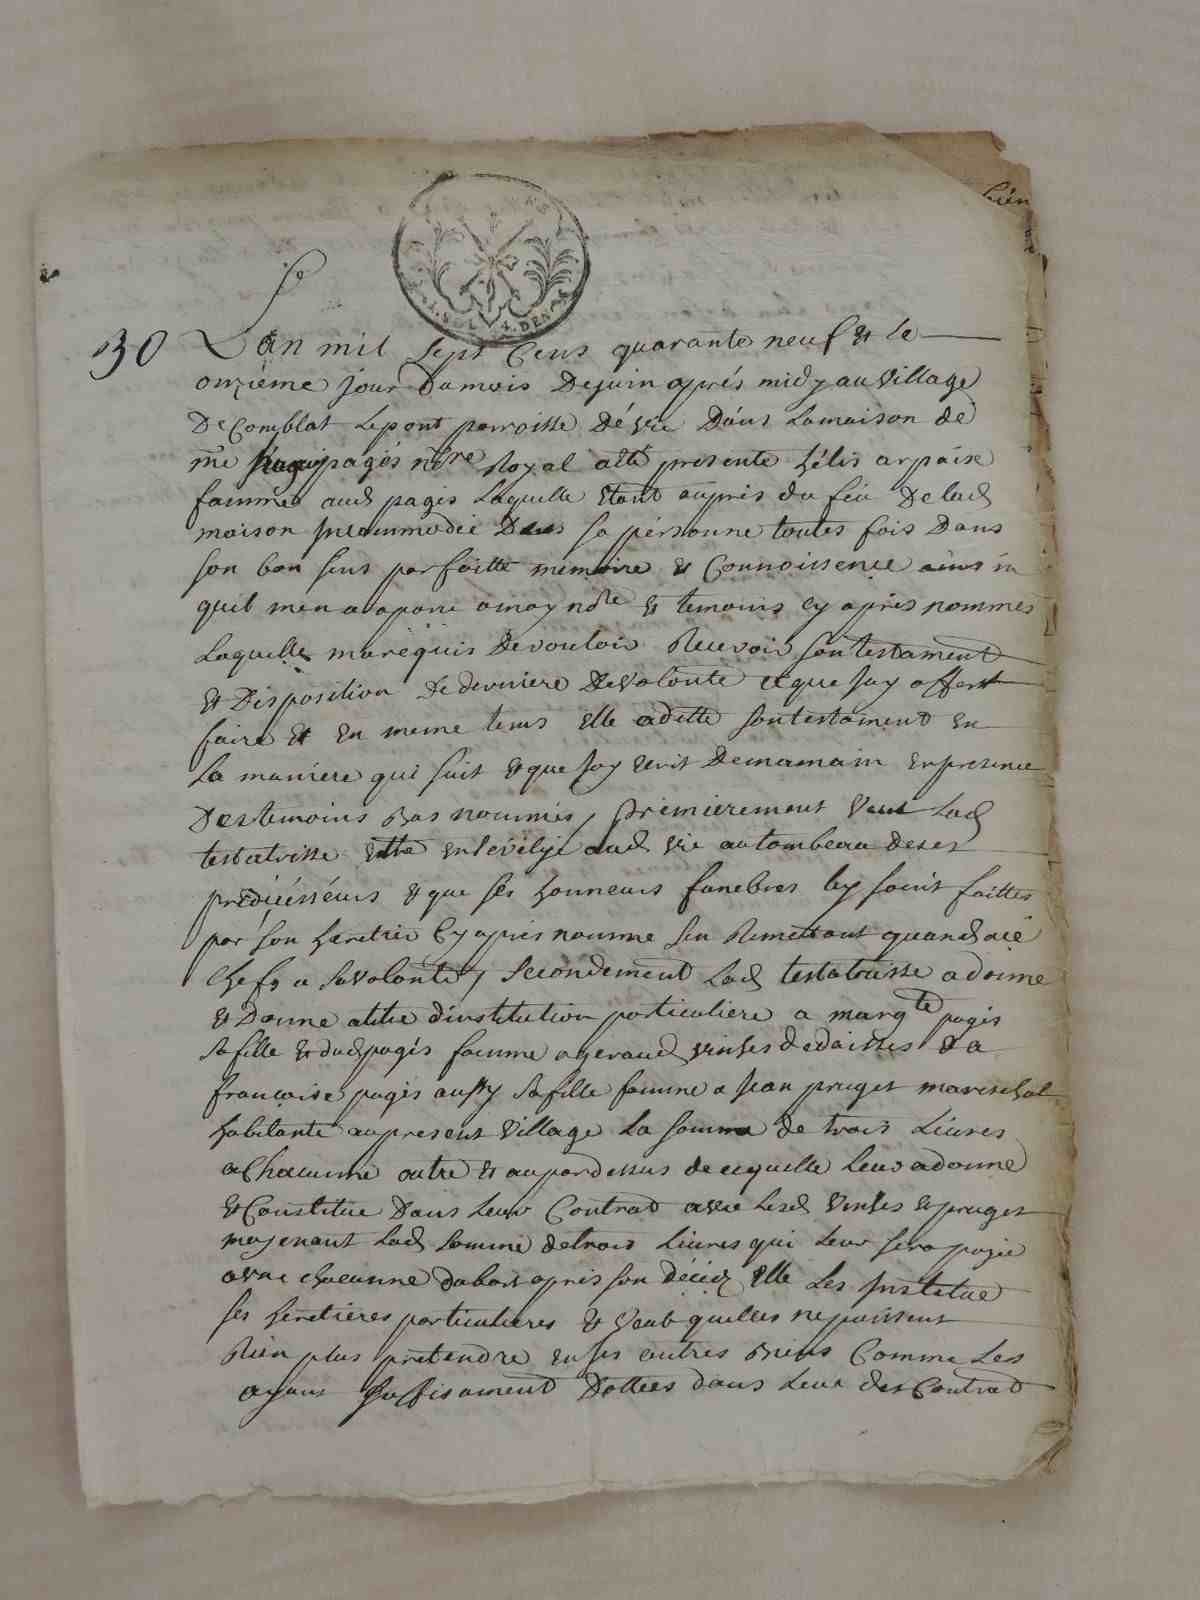 30
Lan mil sept Cens quarante neuf & le
onzieme jour Dumois Dejuin aprés midy au village
De Comblat Lepont parroisse Dévic Dans Lamaison de
me pagés nore Royal a été presente hélis arpaise
famme aud pagés Laquelle Etant aupres du feu De lad
maison Incommodée Dans sa personne toutes fois Dans
son bon sens parfaitte memoire & Connoissence ains in
quil men a aparu a moy nore & temoins cy aprés nommes
Laquelle ma requis De vouloir Recevoir son testament
& Disposition De derniere De volonte ce que Jay offert
faire & En meme tems Elle a ditte son testament En
La maniere qui suit & que Jay Ecrit De ma main En presence
Des temoins Bas nommés, premierement Veut Lad
testatrisse Ettre Ensevelye aud vic au tombeau de ses
prédécésséurs & que ses honneurs funebres luy soint faittes
par son heretier Cy aprés nomme sen Remettant quand a ce
Chef a sa volonté, Secondement Lad testatrisse a donne
& Donne a titre dinstitution particuliere a margte pagés
sa fille & dud pagés famme a geraud vinhes de daisses & a
françoise pagés aussy sa fille famme a Jean pruget mareschal
habitante au present village La somme de trois Livres
a Chacunne outre & au par dessus de ce quelle Leur a donne
& Constitue Dans Leur Contrad avec Lesd vinhes & pruget
moyenant Lad somme de trois Livres qui Leur sera payée
a chacunne dabord aprés son décéz Elle Les Institue
ses heretieres particulieres & veut quelles ne puissent
Rien plus pretendre En ses autres Biens Comme Les
ayant suffisament Dottées dans Leur des Contrad